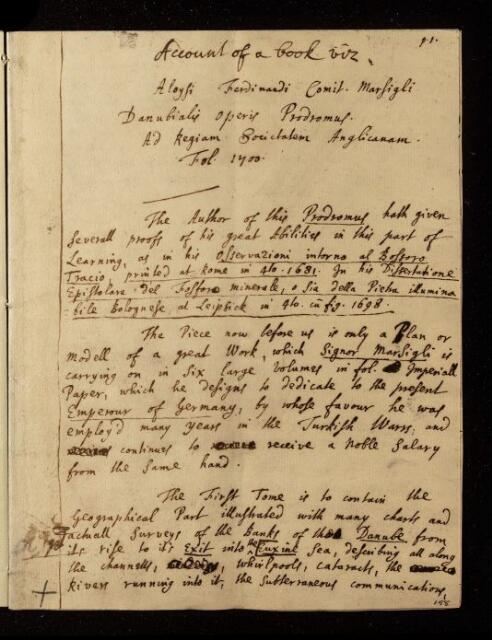 91.
Account of a book viz.
Aloysi Ferdinandi Comit. Marsigli
Danubialis Operis Prodromus.
Ad Regiam Societatem Anglicanam.
Fol. 1700.
The Author of this Prodromus hath given
severall proofs of his great Abilities in this part of
Learning, as in his Osservazioni intorno al Bosforo
Tracio, printed at Rome in 4to. 1681. In his Dissertatione
Epistolare del Fosforo minerale, o sia della Pietra illumina
=bile Bolognese, at Leipsick in 4to. cū fig. 1698.
The Piece now before us is only a Plan or
Modell of a great Work, which Signor Marsigli is
carrying on in Six large Volumes in fol. Imperiall
Paper, which he designs to dedicate to the present
Emperour of Germany, by whose favour he was
employ'd many years in the Turkish Warrs, and
continues to receive a Noble Salary
from the same hand.
The First Tome is to contain the
Geographical Part illustrated with many charts and
actuall Surveys of the Banks of the Danube from
its rise to it's Exit into the Euxine Sea, describing all along
the channells, whirlpools, cataracts, the
Rivers running into it, the Subterraneous communications,
188